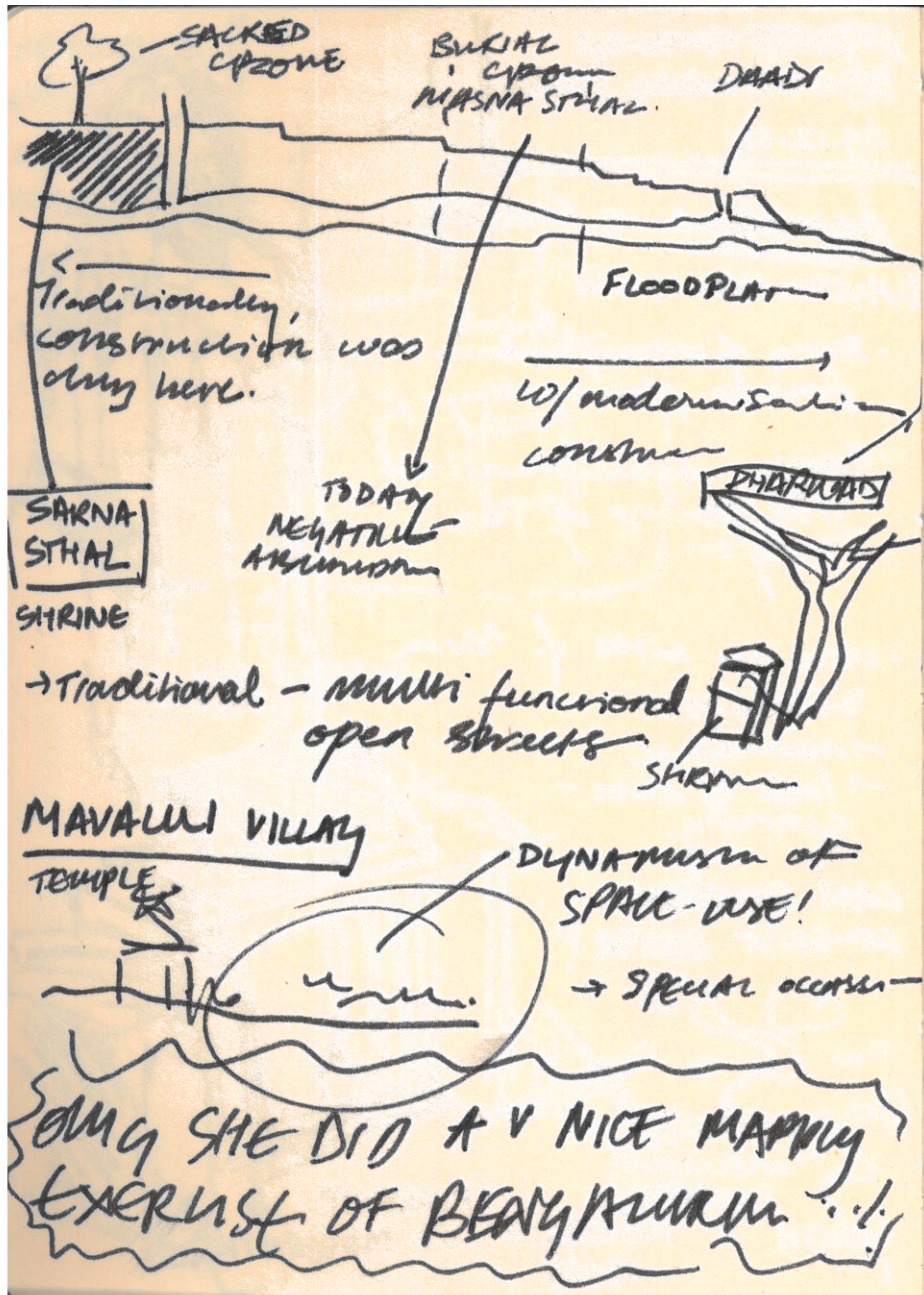 SACRED
GROVE
BURIAL
GROUN
MASNA STHAL.
<
Traditionally,
construction was
only here.
FLOODPLAIN
w/ modernisation
construc
SARNA
STHAL
SHRINE
TODAY
NEGATIVE
DHARWAD
→ Traditional - multi functional
open streets
SHRINE
MAVALLI VILLAG
TEMPLE
DYNAMISM OF
SPACE-USE!
→ SPECIAL occassion
OMG SHE DID A V NICE MAPPING
EXERCISE OF BENGALURU ..!